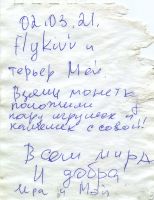 02.03.21.
Flykiwi и
терьер Май
Взяли монеты
положили
пару игрушек и
камешек с собой!
Всем мира
И добра
Ира и Май